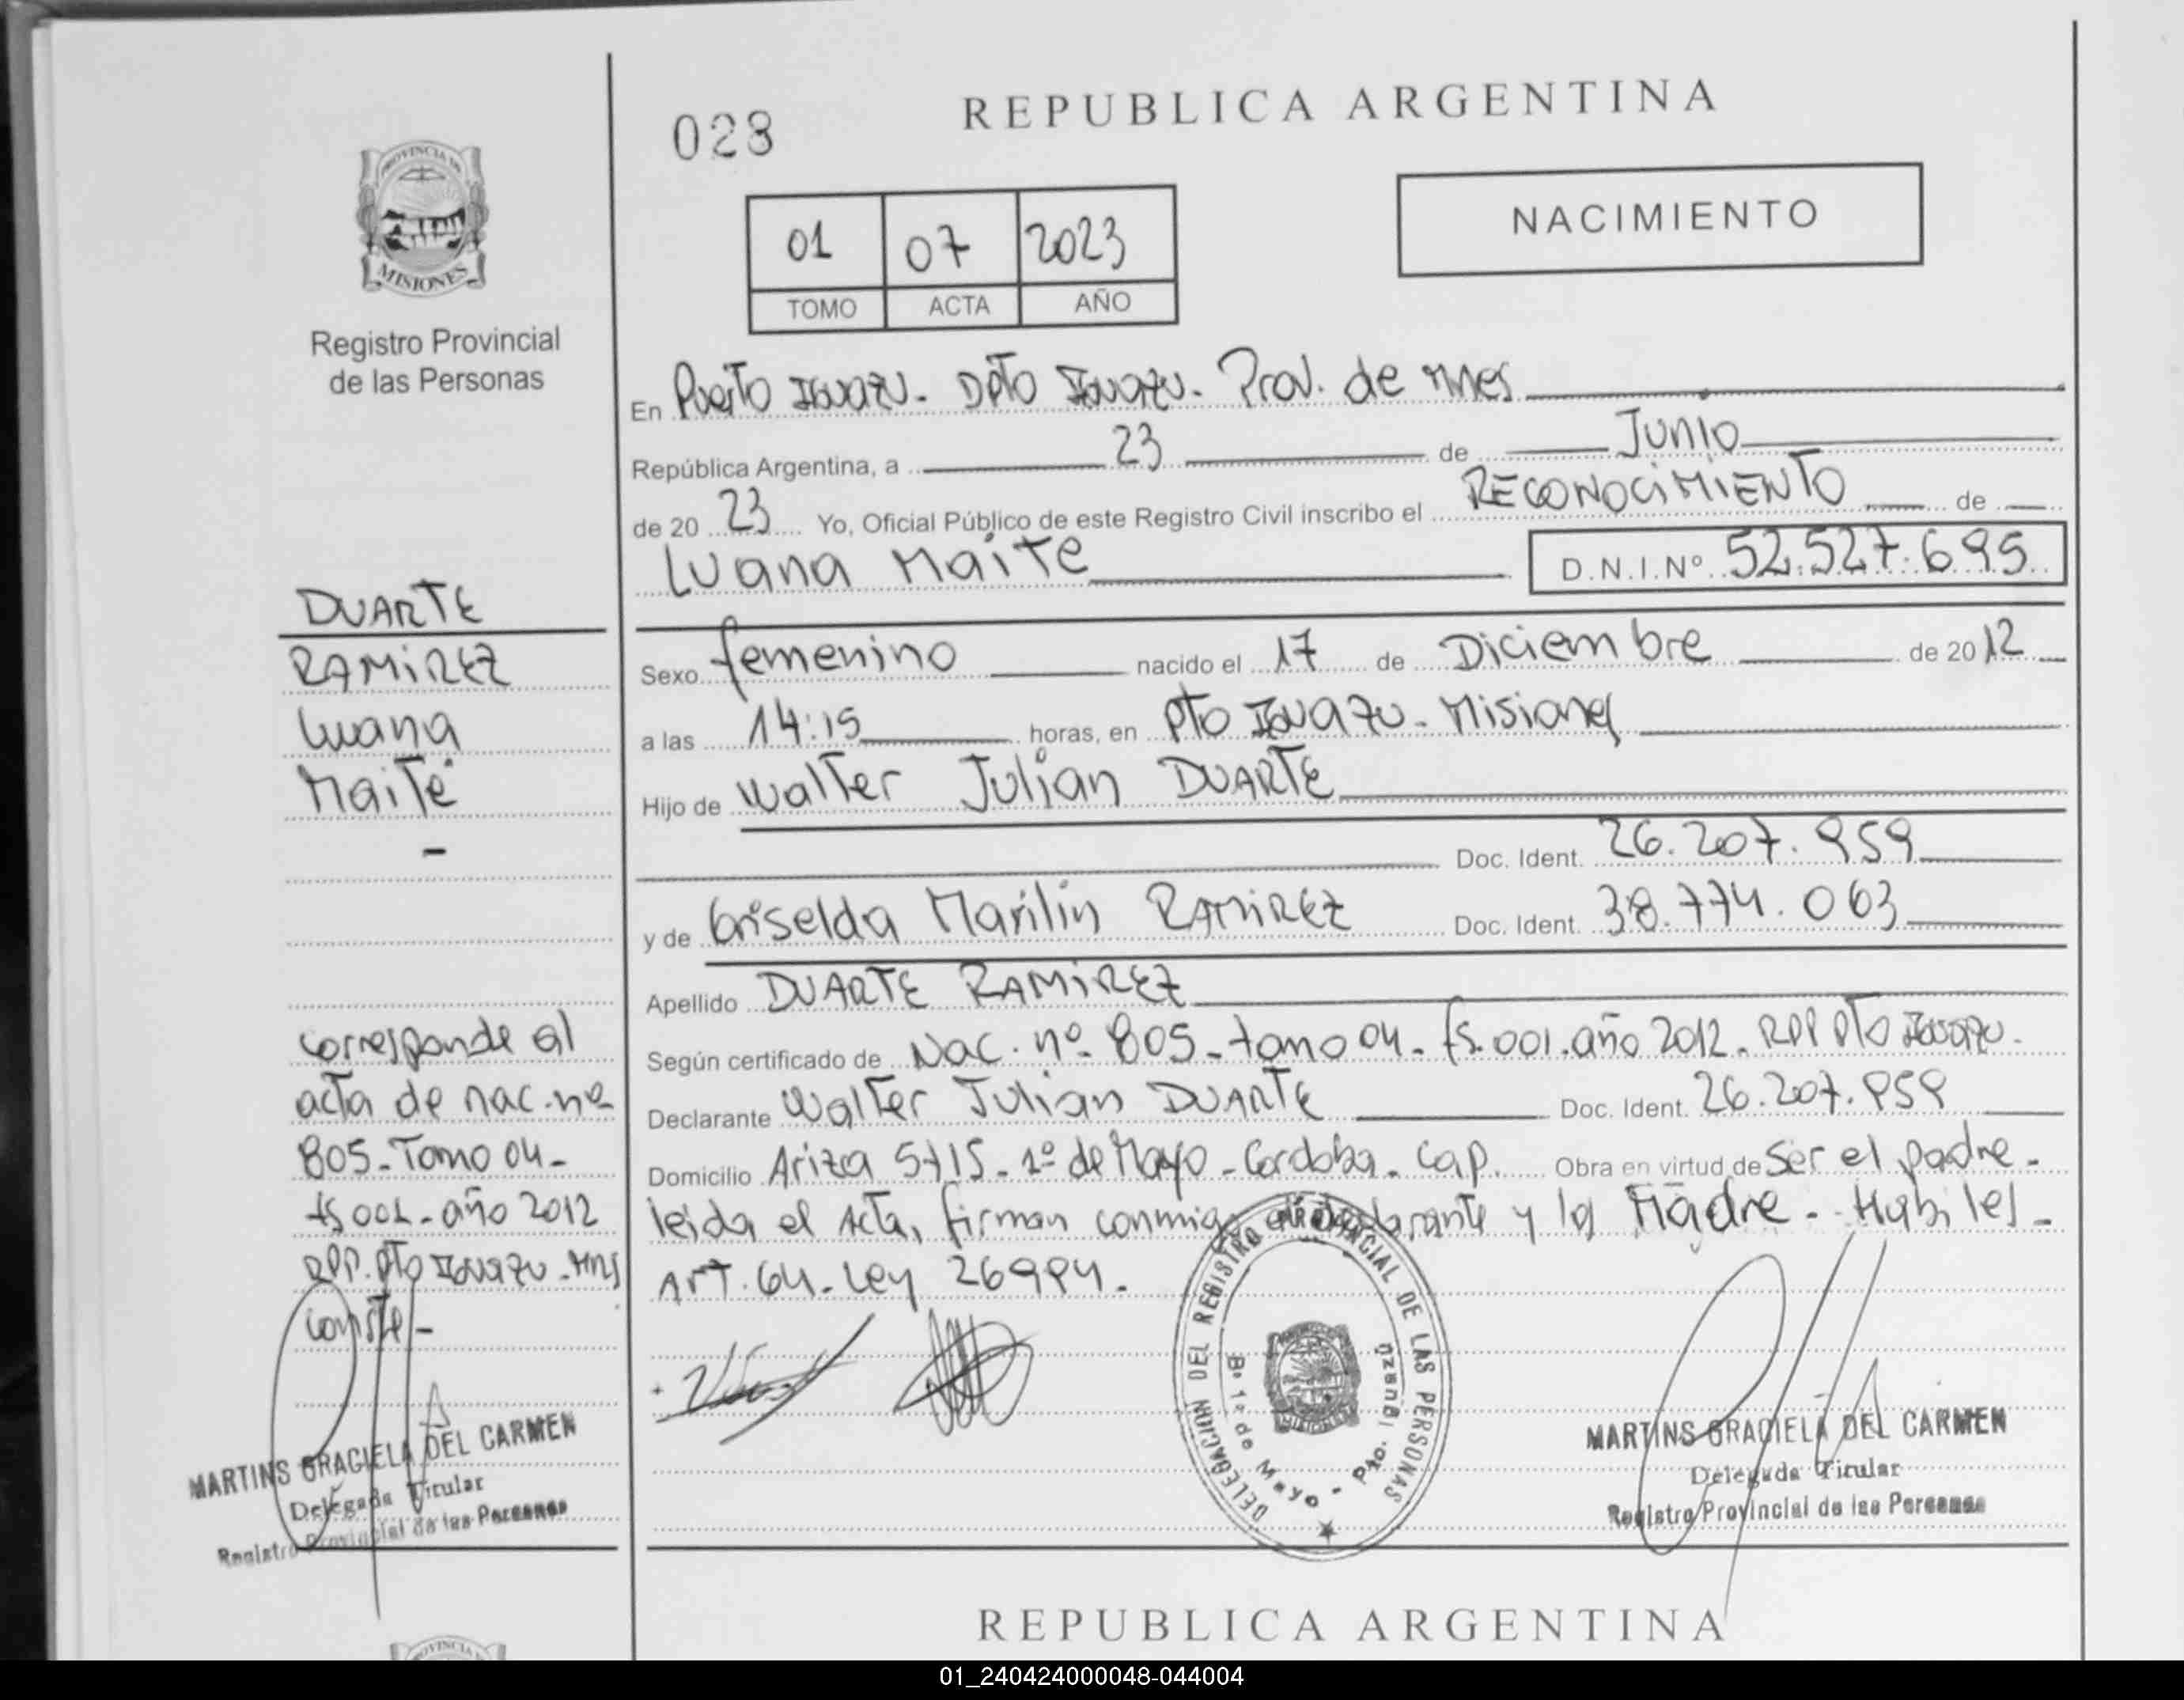 028
REPUBLICA ARGENTINA
PROVINCIA DE
MISIONES
Registro Provincial
de las Personas
01 07 2023
TOMO ACTA AÑO
NACIMIENTO
En Puerto Iguazu. Dpto Iguazu. Prov. de Mnes
República Argentina, a 23 de Junio
de 20 23 Yo, Oficial Público de este Registro Civil inscribo el RECONOCIMIENTO de
Luana Maite D.N.I.Nº 52.527.695
Sexo femenino nacido el 17 de Diciembre de 20 12
a las 14:15 horas, en Pto Iguazu - Misiones
Hijo de Walter Julian DUARTE
Doc. Ident. 26.207.959
y de Griselda Marilin RAMIREZ Doc. Ident. 38.774.063
Apellido DUARTE RAMIREZ
Según certificado de Nac. nº 805 - tomo 04 - fs. 001. año 2012. RPP Pto Iguazu.
Declarante Walter Julian DUARTE Doc. Ident. 26.207.959
Domicilio Ariza 5715 - 1º de Mayo - Cordoba. Cap. Obra en virtud de Ser el padre.
leida el Acta, firman conmigo el declarante y la Madre. - Habiles -
ART. 64 - Ley 26994.
DUARTE
RAMIREZ
Luana
Maite
-
corresponde al
acta de nac. nº
805 - Tomo 04 -
fs 001 - año 2012
RPP. Pto Iguazu - Mnes
conste -
MARTINS GRACIELA DEL CARMEN
Delegada Titular
Registro Provincial de las Personas
DELEGACION DEL REGISTRO PROVINCIAL DE LAS PERSONAS
Bº 1º de Mayo - Pto. Iguazu
MARTINS GRACIELA DEL CARMEN
Delegada Titular
Registro Provincial de las Personas
REPUBLICA ARGENTINA
01_240424000048-044004